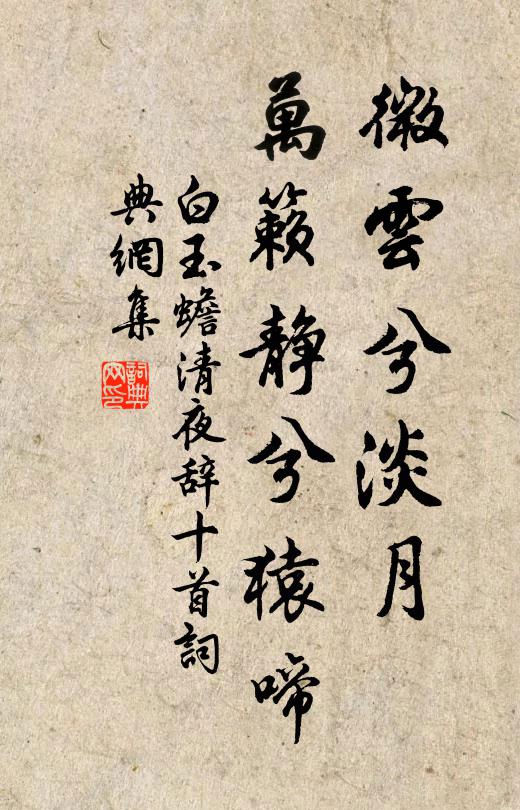 微雲兮淡月
萬籟静兮猿啼
白玉蟾清夜辞十首詞
典網集
詞典网印